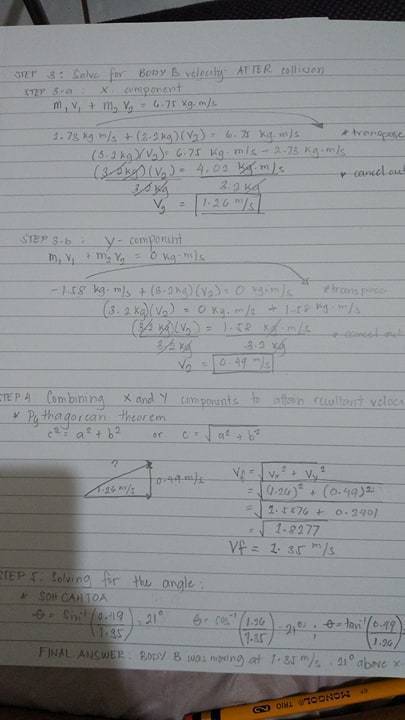 STEP 3: Solve for BODY B velocity AFTER collision
STEP 3-a : X component
m₁v₁ + m₂v₂ = 6.75 kg·m/s
2.73 kg m/s + (3.2kg)(v₂) = 6.75 kg·m/s * transpose
(3.2kg)(v₂) = 6.75 kg·m/s − 2.73 kg·m/s
(3.2kg)(v₂) = 4.02 kg·m/s * cancel out
3.2 kg 3.2 kg
v₂ = 1.26 m/s
STEP 3-b : Y- component
m₁v₁ + m₂v₂ = 0 kg·m/s
-1.58 kg·m/s + (3.2kg)(v₂) = 0 kg·m/s * transpose
(3.2kg)(v₂) = 0 kg·m/s + 1.58 kg·m/s
(3.2kg)(v₂) = 1.58 kg·m/s * cancel out
3.2 kg 3.2 kg
v₂ = 0.49 m/s
STEP 4 Combining X and Y components to attain resultant veloci
* Pythagorean theorem
c² = a² + b² or c = √a² + b²
?
1.26 m/s
0.49 m/s
Vf = √Vx² + Vy²
= √(1.26)² + (0.49)²
= √1.5876 + 0.2401
= √1.8277
Vf = 1.35 m/s
STEP 5: Solving for the angle:
* SOH CAH TOA
θ = sin⁻¹(0.49/1.35) = 21° θ = cos⁻¹(1.26/1.35) = 21° ; θ = tan⁻¹(0.49/1.26)
FINAL ANSWER: BODY B was moving at 1.35 m/s 21° above x-
MONGOL TRIO 2